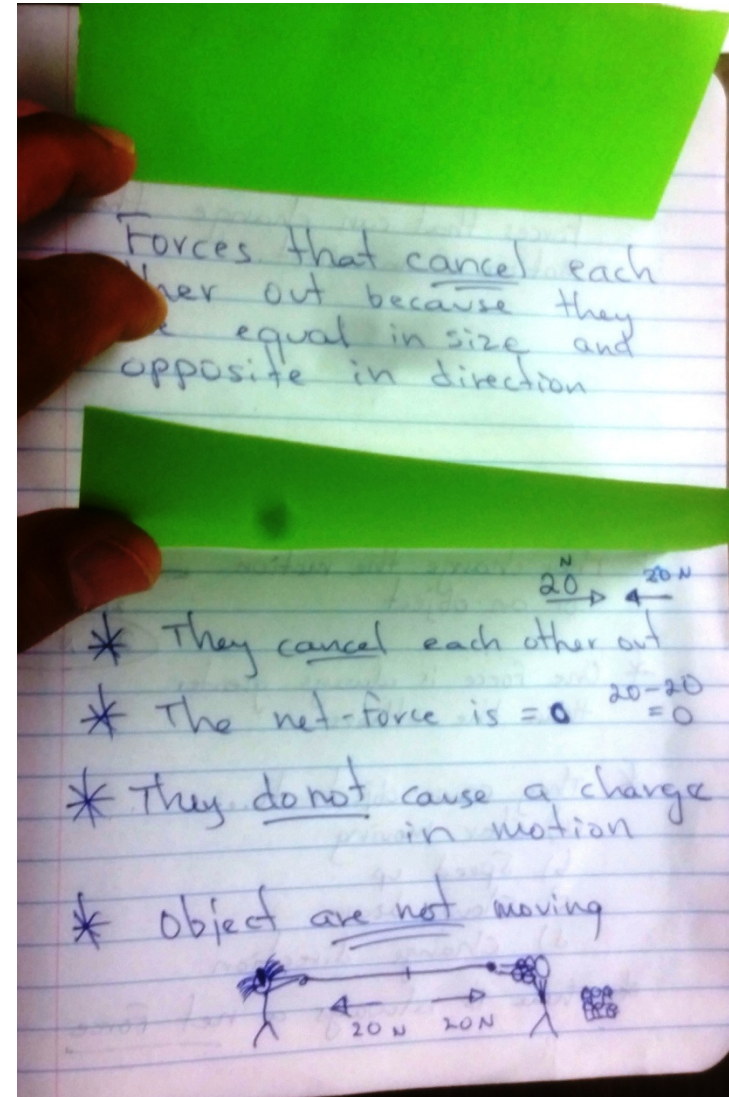 Forces that cancel each
ther out because they
e equal in size and
opposite in direction
N
20 20 N
* They cancel each other out
* The net-force is = 0 20-20
= 0
* They do not cause a change
in motion
* Object are not moving
20 N 20 N